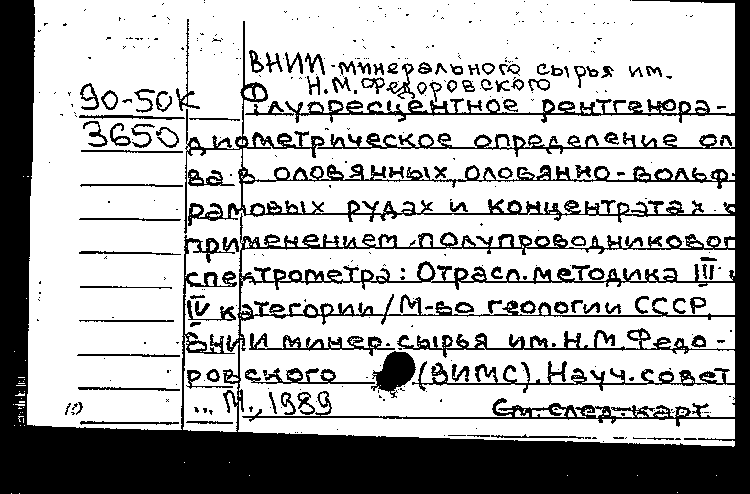 ВНИИ минерального сырья им.
Н.М. Федоровского
90-50К
3650
① Флуоресцентное рентгенора-
диометрическое определение ол
ва в оловянных, оловянно-вольф-
рамовых рудах и концентратах с
применением полупроводниковог
спектрометра: Отрасл. методика III и
IV категории / М-во геологии СССР,
ВНИИ минер. сырья им. Н.М. Федо-
ровского (ВИМС). Науч. совет
... М., 1989
См. след. карт.